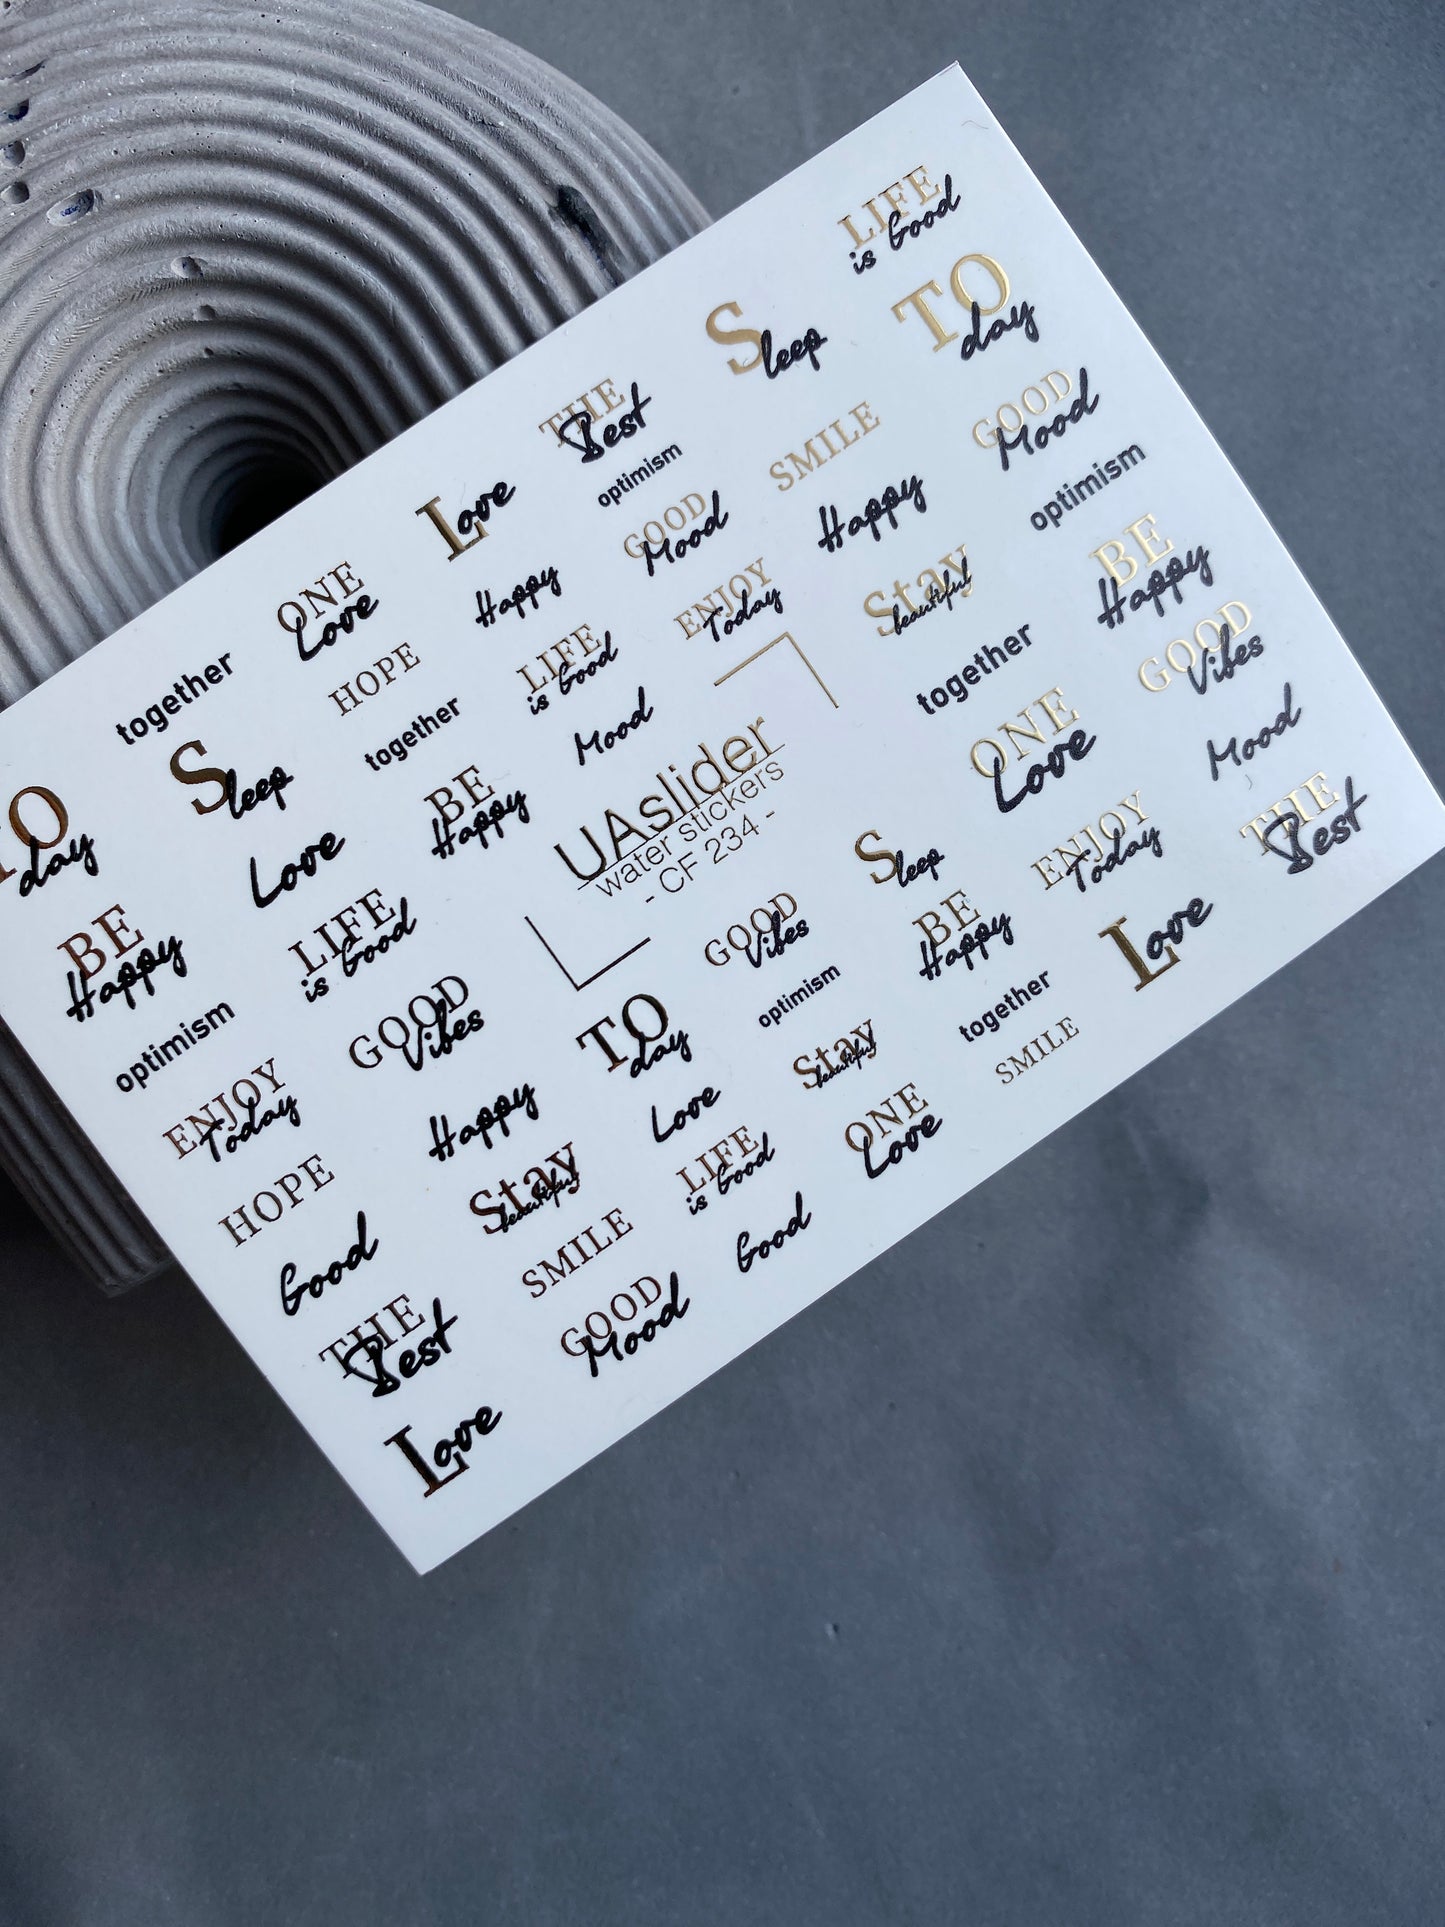 LIFE
is Good
TO
day
Sleep
GOOD
Mood
THE
Best
SMILE
optimism
optimism
Love
GOOD
Mood
Happy
BE
Happy
ONE
Love
Happy
ENJOY
Today
Stay
beautiful
GOOD
Vibes
together
HOPE
LIFE
is Good
together
Mood
Sleep
together
Mood
ONE
Love
THE
Best
TO
day
Love
BE
Happy
UAslider
water stickers
- CF 234 -
Sleep
ENJOY
Today
BE
Happy
LIFE
is Good
GOOD
Vibes
BE
Happy
Love
optimism
GOOD
Vibes
TO
day
optimism
together
ENJOY
Today
Happy
Love
Stay
beautiful
SMILE
HOPE
Stay
beautiful
LIFE
is Good
ONE
Love
Good
SMILE
Good
THE
Best
GOOD
Mood
Love